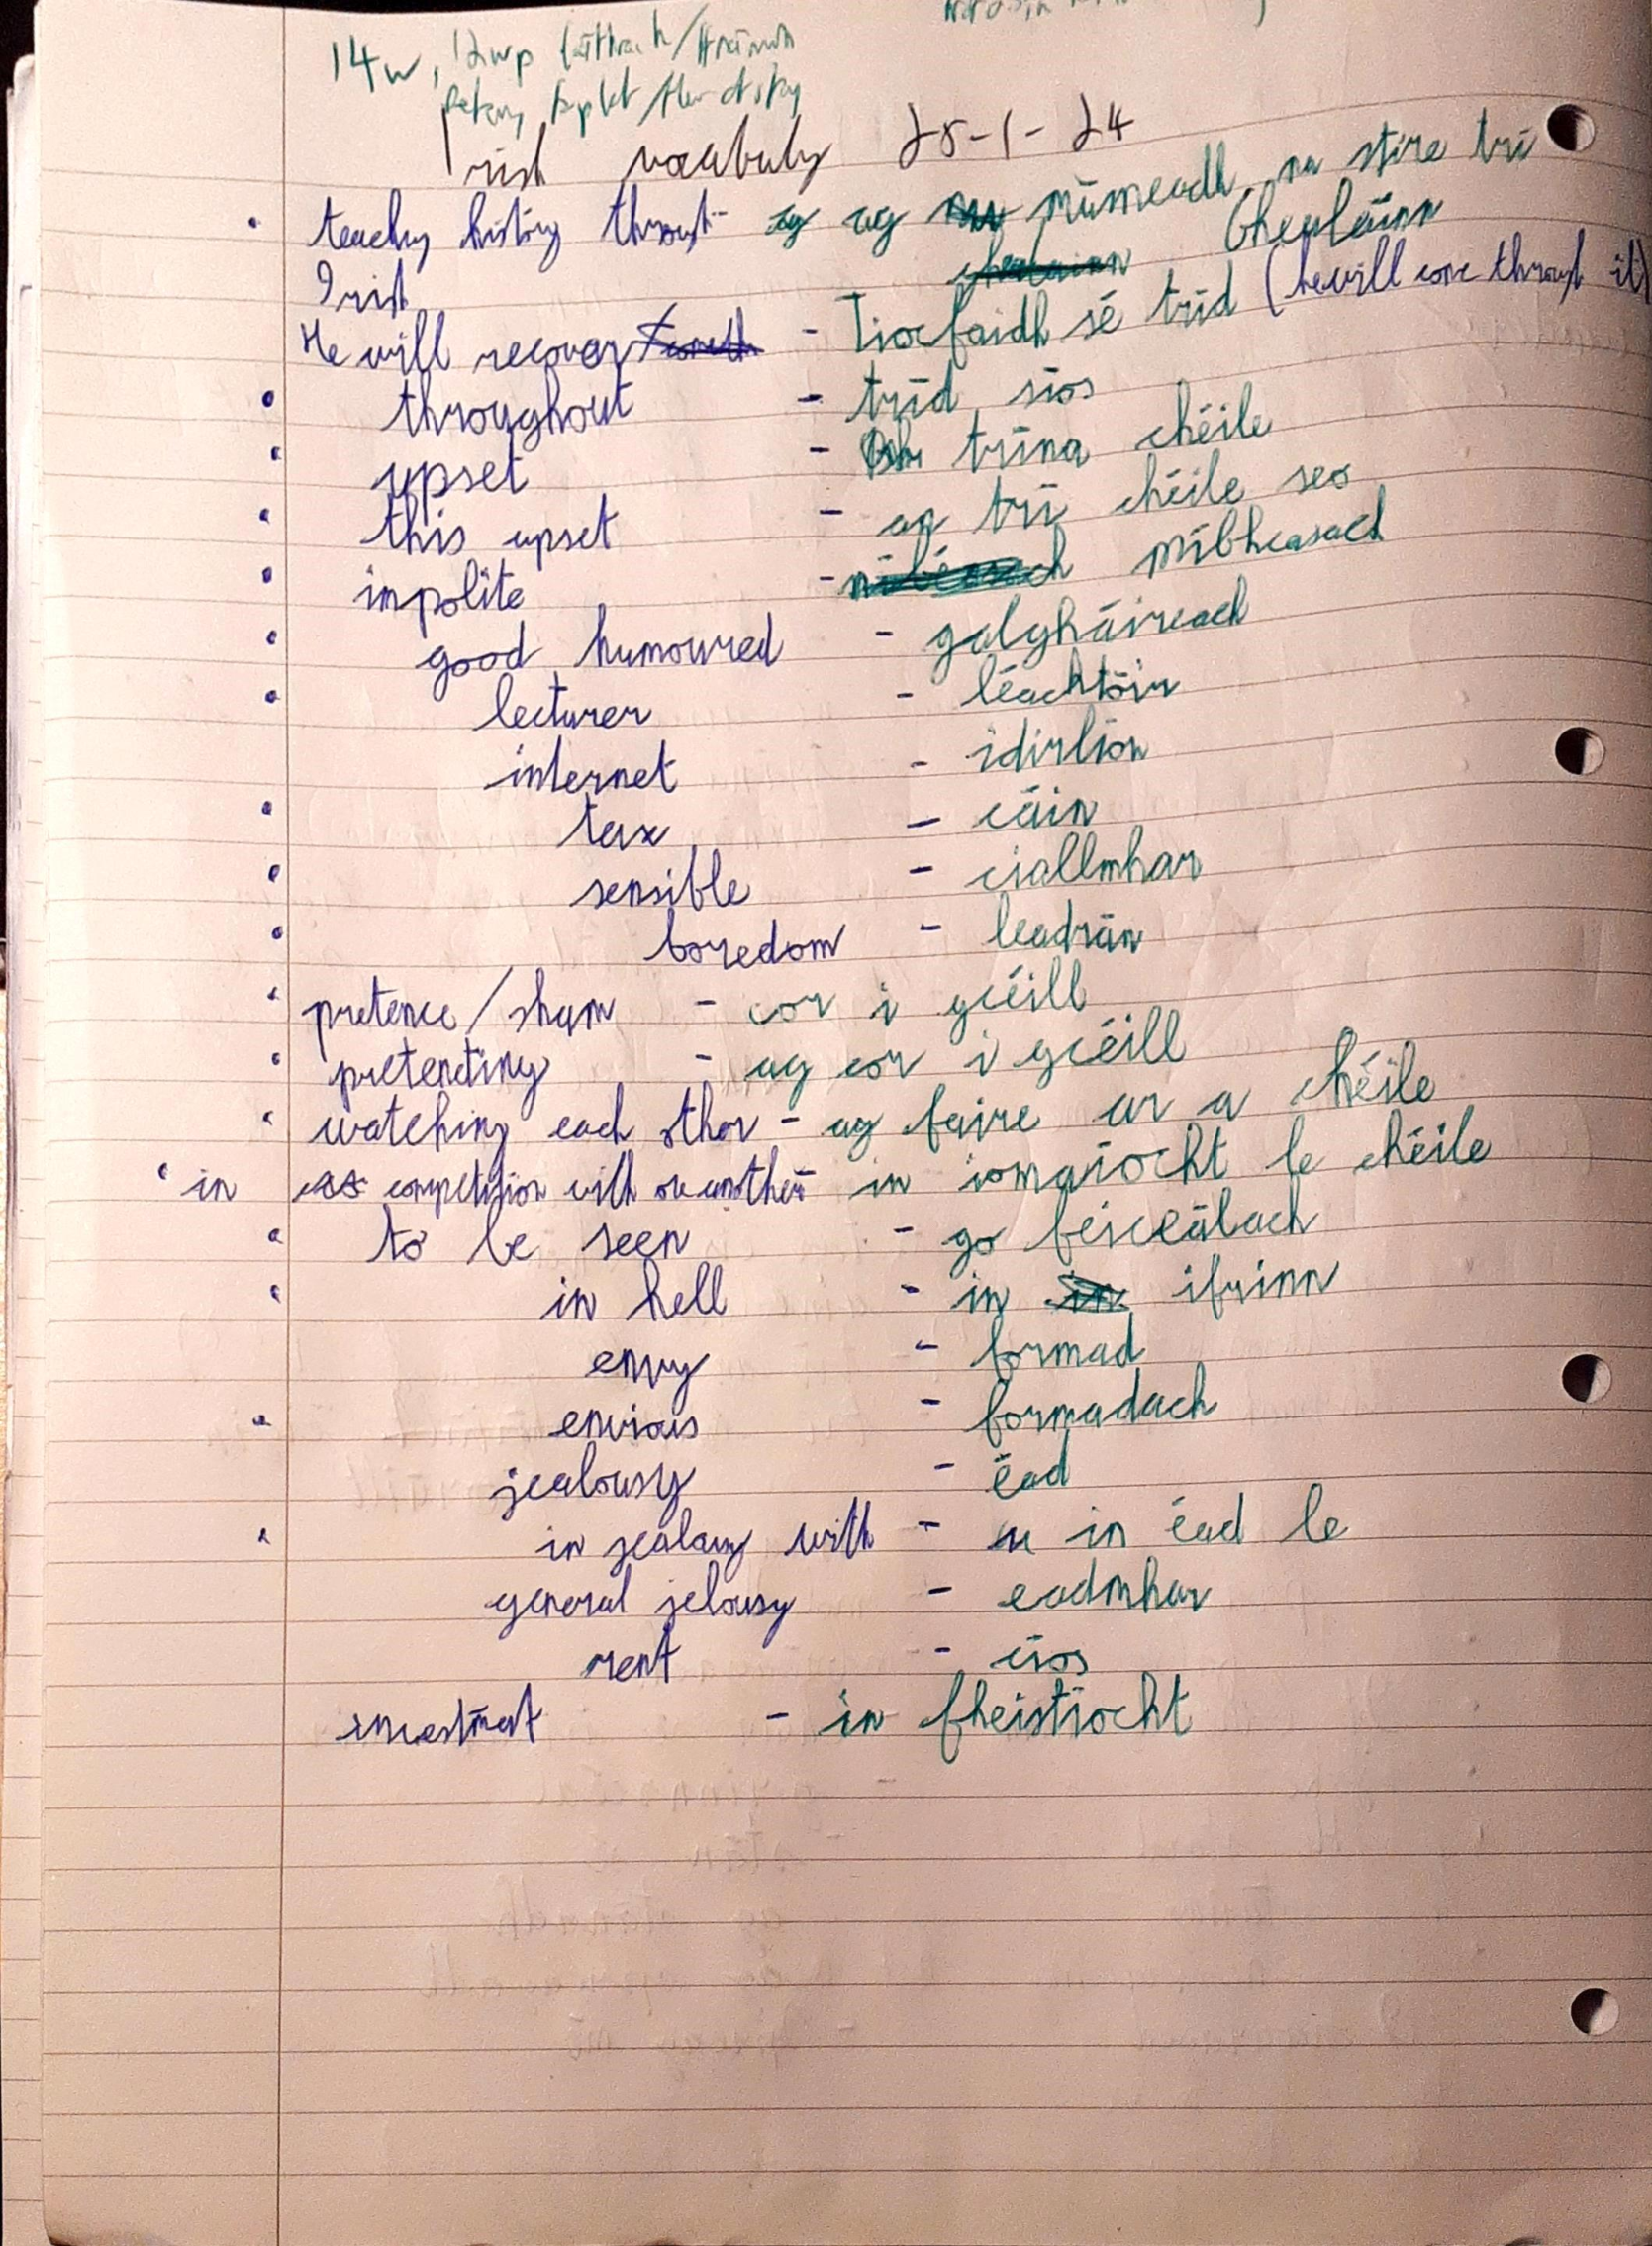 14w, 12wp
Irish vocabulary 28-1-24
teaching history through - ag múineadh na stire trí
Irish bhealáinn
He will recover - Tiocfaidh sé tríd (he will come through it)
throughout - tríd síos
upset - trína chéile
this upset - an trí chéile seo
impolite - míbheasach
good humoured - galgháireach
lecturer - léachtóir
internet - idirlíon
tax - cáin
sensible - ciallmhar
boredom - leadrán
pretence/sham - cor i gcéill
pretending - ag cor i gcéill
watching each other - ag faire ar a chéile
in competition with one another - in iomaíocht le chéile
to be seen - go feiceálach
in hell - in ifrinn
envy - formad
envious - formadach
jealousy - éad
in jealousy with - in éad le
general jelousy - eadmhar
rent - cíos
investment - in fheistíocht